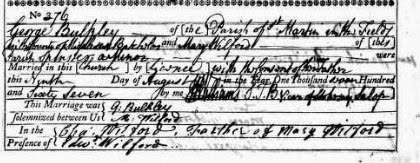 No 276
George Bulkley of the Parish of St Martin in the Fields
in the County of Middlesex Batchelor and Mary Wilford of this
Parish Spinster a Minor were
Married in this Church by Licence with the Consent of her Father
this Ninth Day of August in the Year One Thousand seven Hundred
and Sixty Seven by me
This Marriage was G. Bulkley
Solemnized between Us M. Wilford
In the Cha. Wilford, Father of Mary Wilford
Presence of Edwd Wilford.